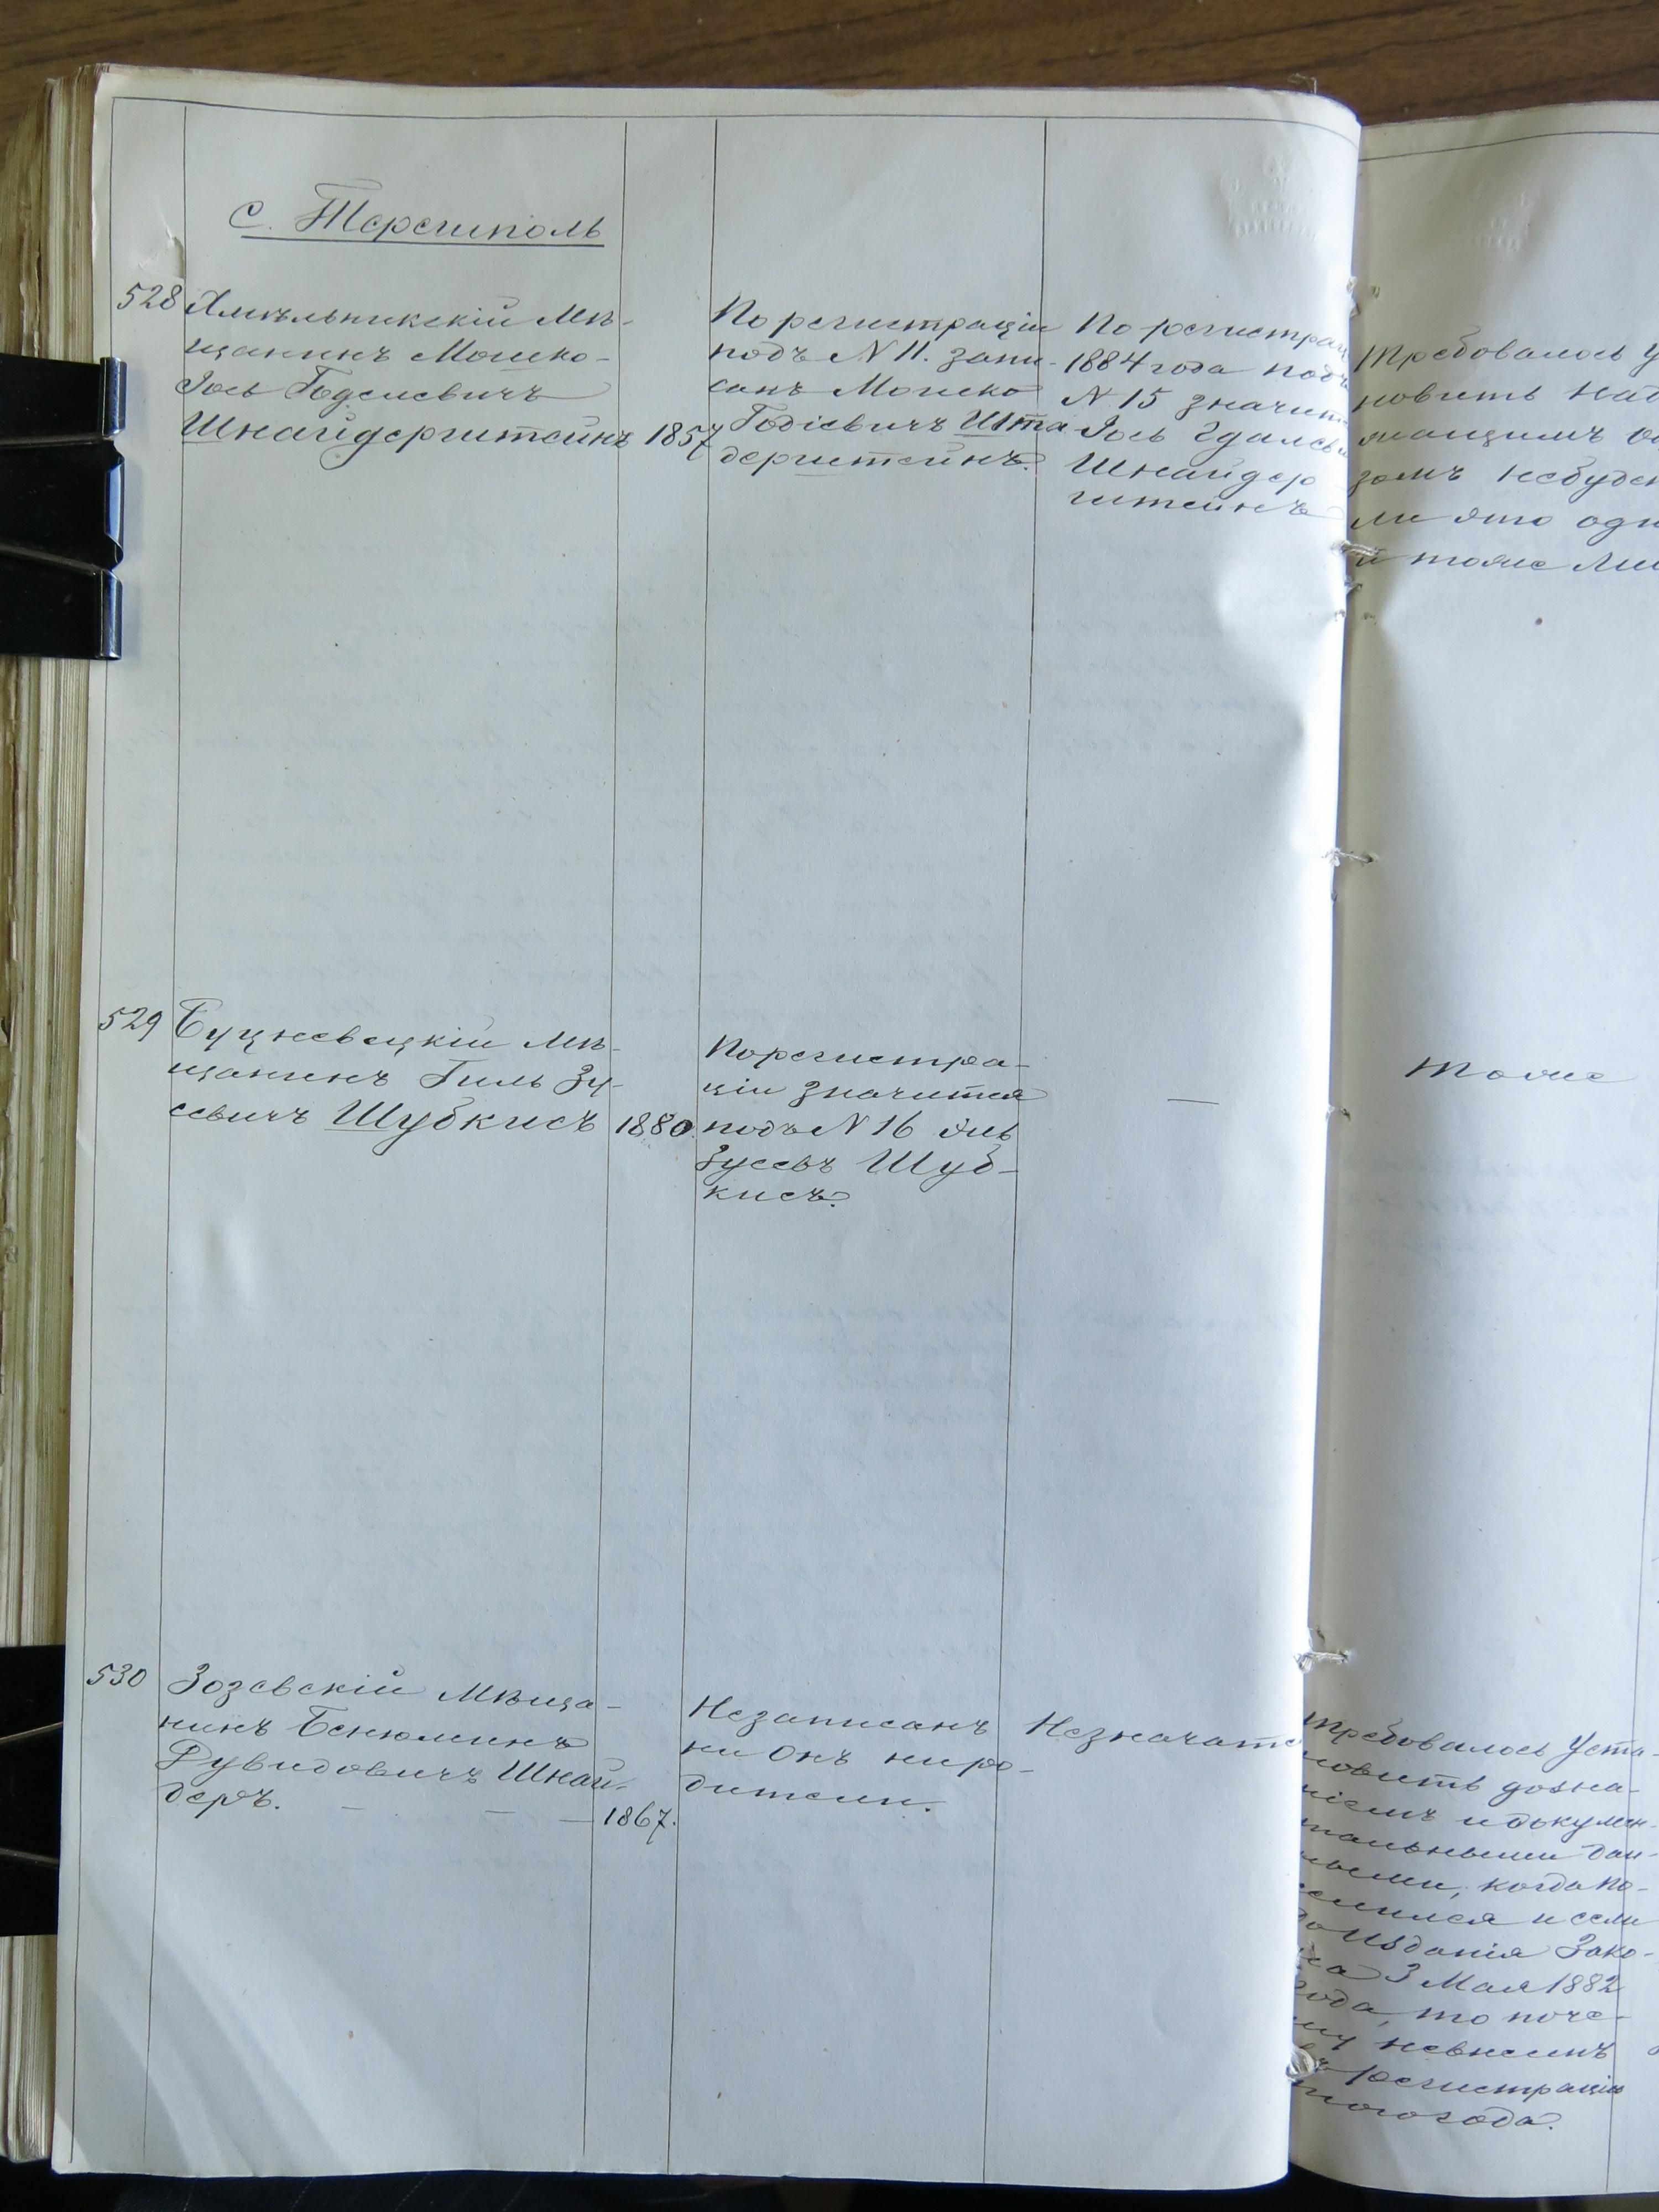 с. Терешполь
528
Хмѣльникскій Мѣ-
щанинъ Мошко-
Іось Годелевичъ
Шнайдерштейнъ 1857
По регистраціи
подъ N 11. запи-
санъ Мошко
Годіевичъ Шта
дерштейнъ.
По регистрац
1884 года подъ
N 15 значит
Іось Гдалев
Шнайдер
штейнъ
Требовалось у
новить над
жащимъ о
зомъ небуде
ли это одн
и тоже ли
529
Буцневецкій Мѣ-
щанинъ Гиль Зу-
севичъ Шубкисъ 1880.
По регистра-
ціи значится
подъ N 16
Зусевъ Шуб-
кисъ.
—
тоже
530
Зозевскій Мѣща-
нинъ Бенюминъ
Рувидовичъ Шнай-
деръ. — — — 1867.
Незаписанъ
ни онъ ниро-
дители.
Незначатс
Требовалось Уста-
новить дозна-
ніемъ идокумен-
тальными дан-
ными, когда по-
селился и если
до Изданія Зако-
на 3 Мая 1882
года, то поче-
му невнесенъ
въ регистрацію
того года.